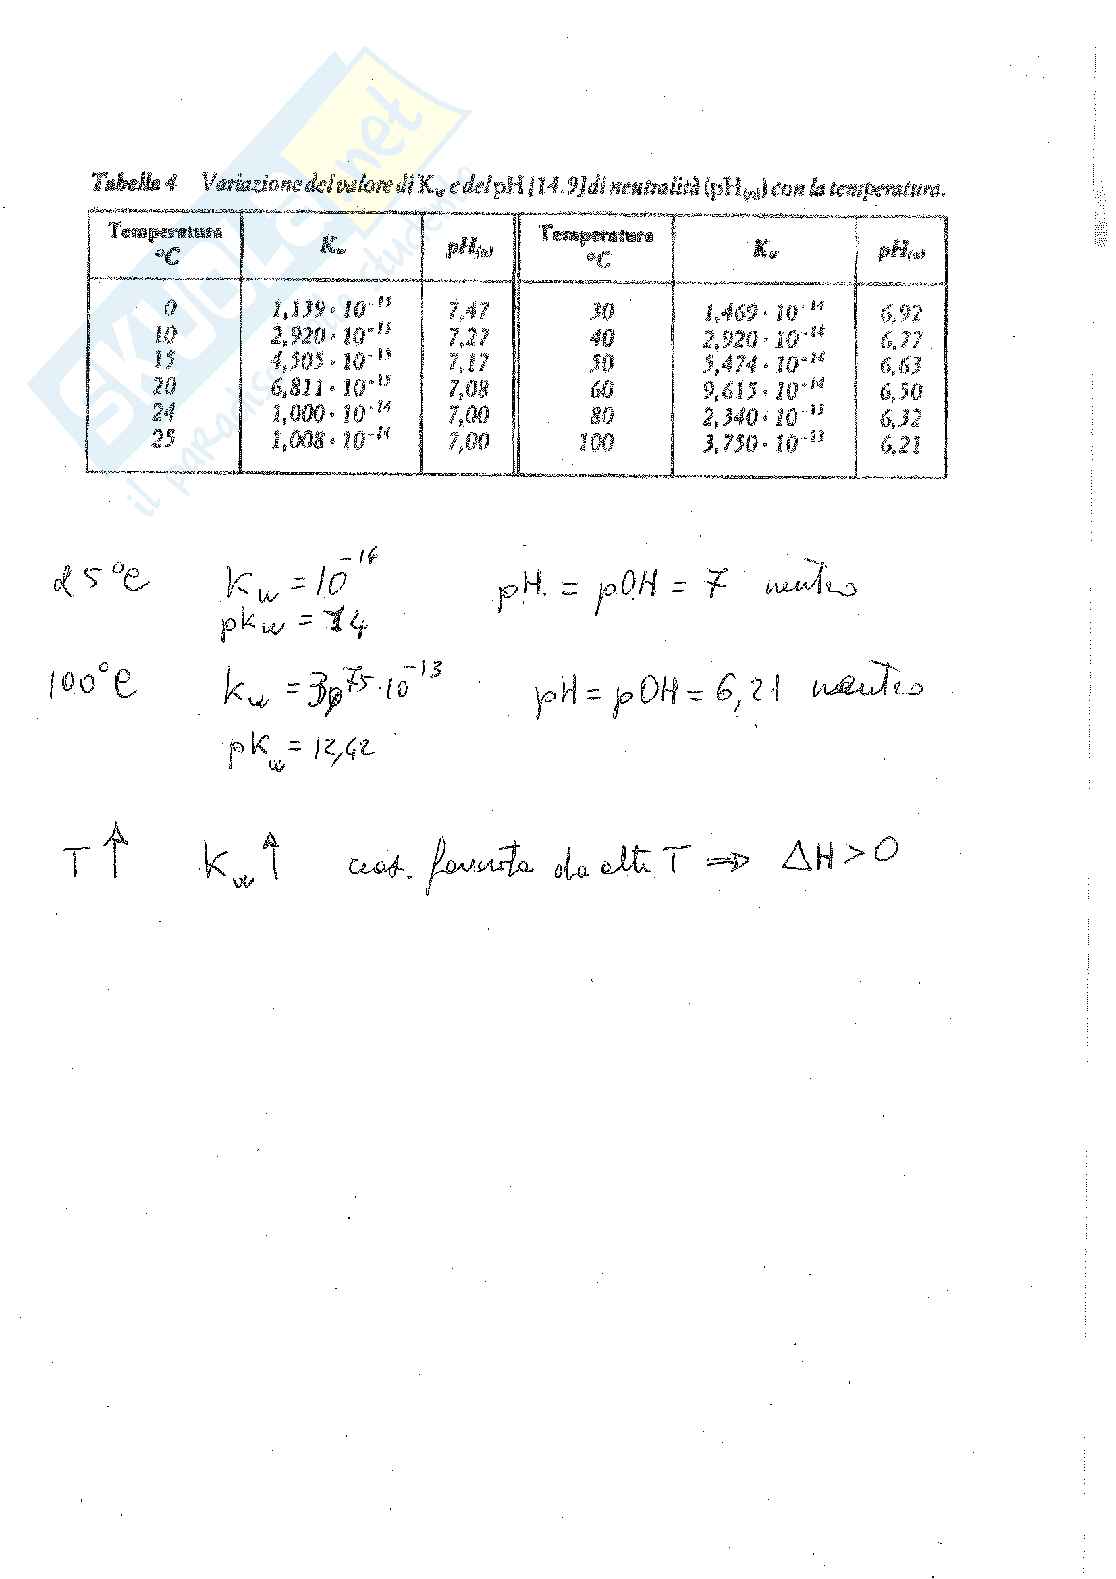 Tabella 4 Variazione del valore di Kw e del pH [14.9] di neutralità (pH(n)) con la temperatura.
Temperatura °C Kw pH(n) Temperatura °C Kw pH(n)
0 1,139 · 10⁻¹⁵ 7,47 30 1,469 · 10⁻¹⁴ 6,92
10 2,920 · 10⁻¹⁵ 7,27 40 2,920 · 10⁻¹⁴ 6,77
15 4,505 · 10⁻¹⁵ 7,17 50 5,474 · 10⁻¹⁴ 6,63
20 6,811 · 10⁻¹⁵ 7,08 60 9,615 · 10⁻¹⁴ 6,50
24 1,000 · 10⁻¹⁴ 7,00 80 2,340 · 10⁻¹³ 6,32
25 1,008 · 10⁻¹⁴ 7,00 100 3,750 · 10⁻¹³ 6,21
25°C Kw = 10⁻¹⁴ pH = pOH = 7 neutro
pKw = 14
100°C Kw = 3,75 · 10⁻¹³ pH = pOH = 6,21 neutro
pKw = 12,42
T ↑ Kw ↑ reaz. favorita da alte T ⇒ ΔH > 0
SKUOLA.net
il paradiso dello studente